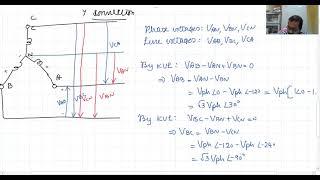 Y Connection
C
C
VCA
B
A
VAB
VBC
VCN
VBN
VAN
Phase voltages: VAN, VBN, VCN
Line voltages: VAB, VBC, VCA
By KVL: VAB - VAN + VBN = 0
⇒ VAB = VAN - VBN
= Vph∠0 - Vph∠-120 = Vph[1∠0 - 1.
= √3 Vph∠30°
By KVL: VBC - VBN + VCN = 0
⇒ VBC = VBN - VCN
= Vph∠-120 - Vph∠-240
= √3 Vph∠-90°